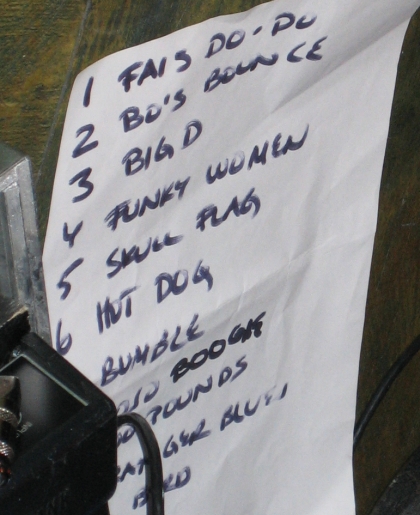 1 FAIS DO-DO
2 BO'S BOUNCE
3 BIG D
4 FUNKY WOMEN
5 SKULL FLAG
6 HOT DOG
BUMBLE
BOOGIE
POUNDS
BLUES
BIRD